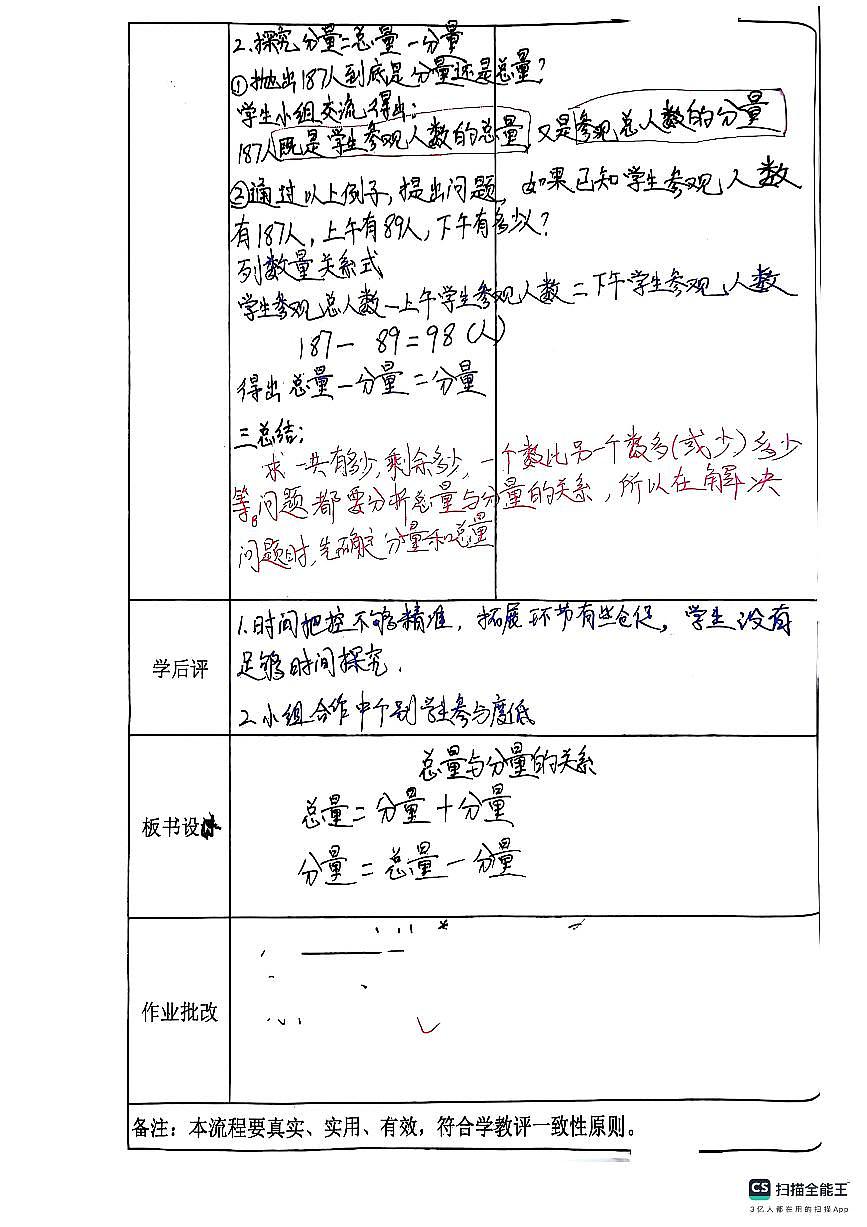 2.探究分量=总量-分量
①抛出187人到底是分量还是总量?
学生小组交流得出:
187人既是学生参观人数的总量,又是参观总人数的分量
②通过以上例子,提出问题,如果已知学生参观人数
有187人,上午有89人,下午有多少?
列数量关系式
学生参观总人数-上午学生参观人数=下午学生参观人数
187- 89=98(人)
得出总量-分量=分量
三总结:
求一共有多少,剩余多少,一个数比另一个数多(或少)多少
等问题都要分析总量与分量的关系,所以在解决
问题时,先确定分量和总量
学后评
1.时间把控不够精准,拓展环节有些仓促,学生没有
足够时间探究.
2.小组合作中个别学生参与度低
板书设计
总量与分量的关系
总量=分量+分量
分量=总量-分量
作业批改
备注:本流程要真实、实用、有效,符合学教评一致性原则。
CS 扫描全能王
3亿人都在用的扫描App